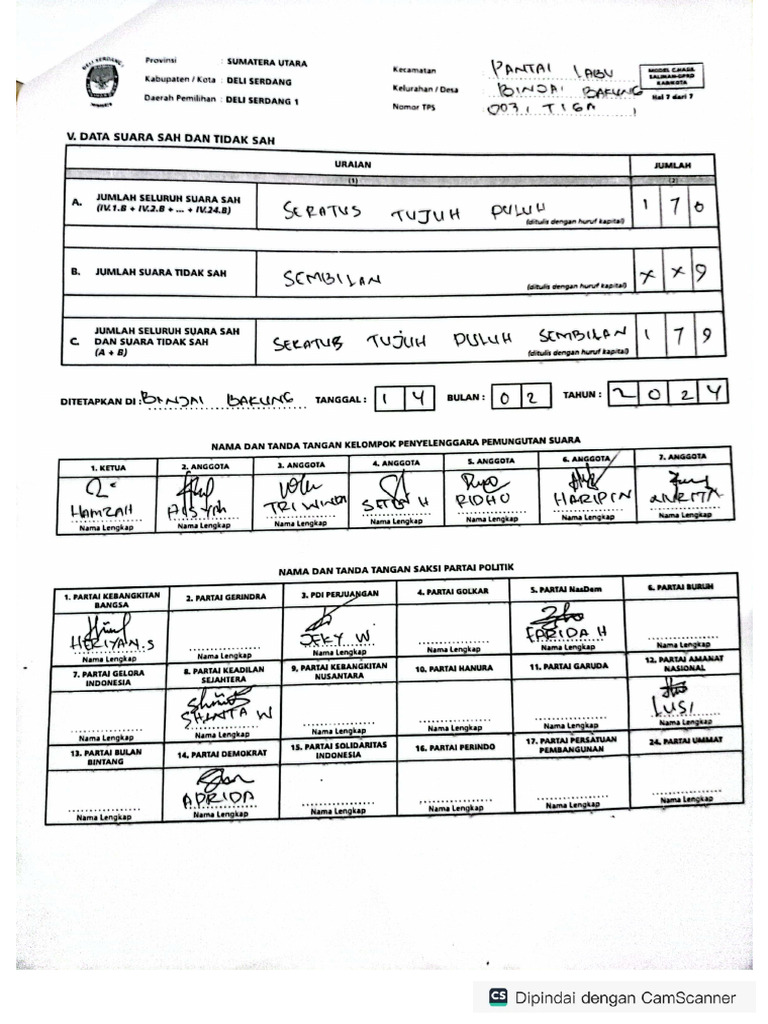 Provinsi : SUMATERA UTARA
Kabupaten / Kota : DELI SERDANG
Daerah Pemilihan : DELI SERDANG 1
Kecamatan : PANTAI LABU
Kelurahan / Desa : BINJAI BAKUNG
Nomor TPS : 003, TIGA
MODEL C.HASIL SALINAN-DPRD KAB/KOTA
Hal 7 dari 7
V. DATA SUARA SAH DAN TIDAK SAH
URAIAN JUMLAH
(1) (2)
A. JUMLAH SELURUH SUARA SAH (IV.1.B + IV.2.B + ... + IV.24.B) SERATUS TUJUH PULUH (ditulis dengan huruf kapital) 1 7 0
B. JUMLAH SUARA TIDAK SAH SEMBILAN (ditulis dengan huruf kapital) X X 9
C. JUMLAH SELURUH SUARA SAH DAN SUARA TIDAK SAH (A + B) SERATUS TUJUH PULUH SEMBILAN (ditulis dengan huruf kapital) 1 7 9
DITETAPKAN DI : BINJAI BAKUNG TANGGAL : 1 4 BULAN : 0 2 TAHUN : 2 0 2 4
NAMA DAN TANDA TANGAN KELOMPOK PENYELENGGARA PEMUNGUTAN SUARA
1. KETUA 2. ANGGOTA 3. ANGGOTA 4. ANGGOTA 5. ANGGOTA 6. ANGGOTA 7. ANGGOTA
HAMZAH AISYAH TRI WINDA RIDHO HARIPIN
Nama Lengkap Nama Lengkap Nama Lengkap Nama Lengkap Nama Lengkap Nama Lengkap Nama Lengkap
NAMA DAN TANDA TANGAN SAKSI PARTAI POLITIK
1. PARTAI KEBANGKITAN BANGSA 2. PARTAI GERINDRA 3. PDI PERJUANGAN 4. PARTAI GOLKAR 5. PARTAI NasDem 6. PARTAI BURUH
HERIYAN.S JEKY W FARIDA H
Nama Lengkap Nama Lengkap Nama Lengkap Nama Lengkap Nama Lengkap Nama Lengkap
7. PARTAI GELORA INDONESIA 8. PARTAI KEADILAN SEJAHTERA 9. PARTAI KEBANGKITAN NUSANTARA 10. PARTAI HANURA 11. PARTAI GARUDA 12. PARTAI AMANAT NASIONAL
SHINTA W LUSI
Nama Lengkap Nama Lengkap Nama Lengkap Nama Lengkap Nama Lengkap Nama Lengkap
13. PARTAI BULAN BINTANG 14. PARTAI DEMOKRAT 15. PARTAI SOLIDARITAS INDONESIA 16. PARTAI PERINDO 17. PARTAI PERSATUAN PEMBANGUNAN 24. PARTAI UMMAT
ADRIDA
Nama Lengkap Nama Lengkap Nama Lengkap Nama Lengkap Nama Lengkap Nama Lengkap
CS Dipindai dengan CamScanner